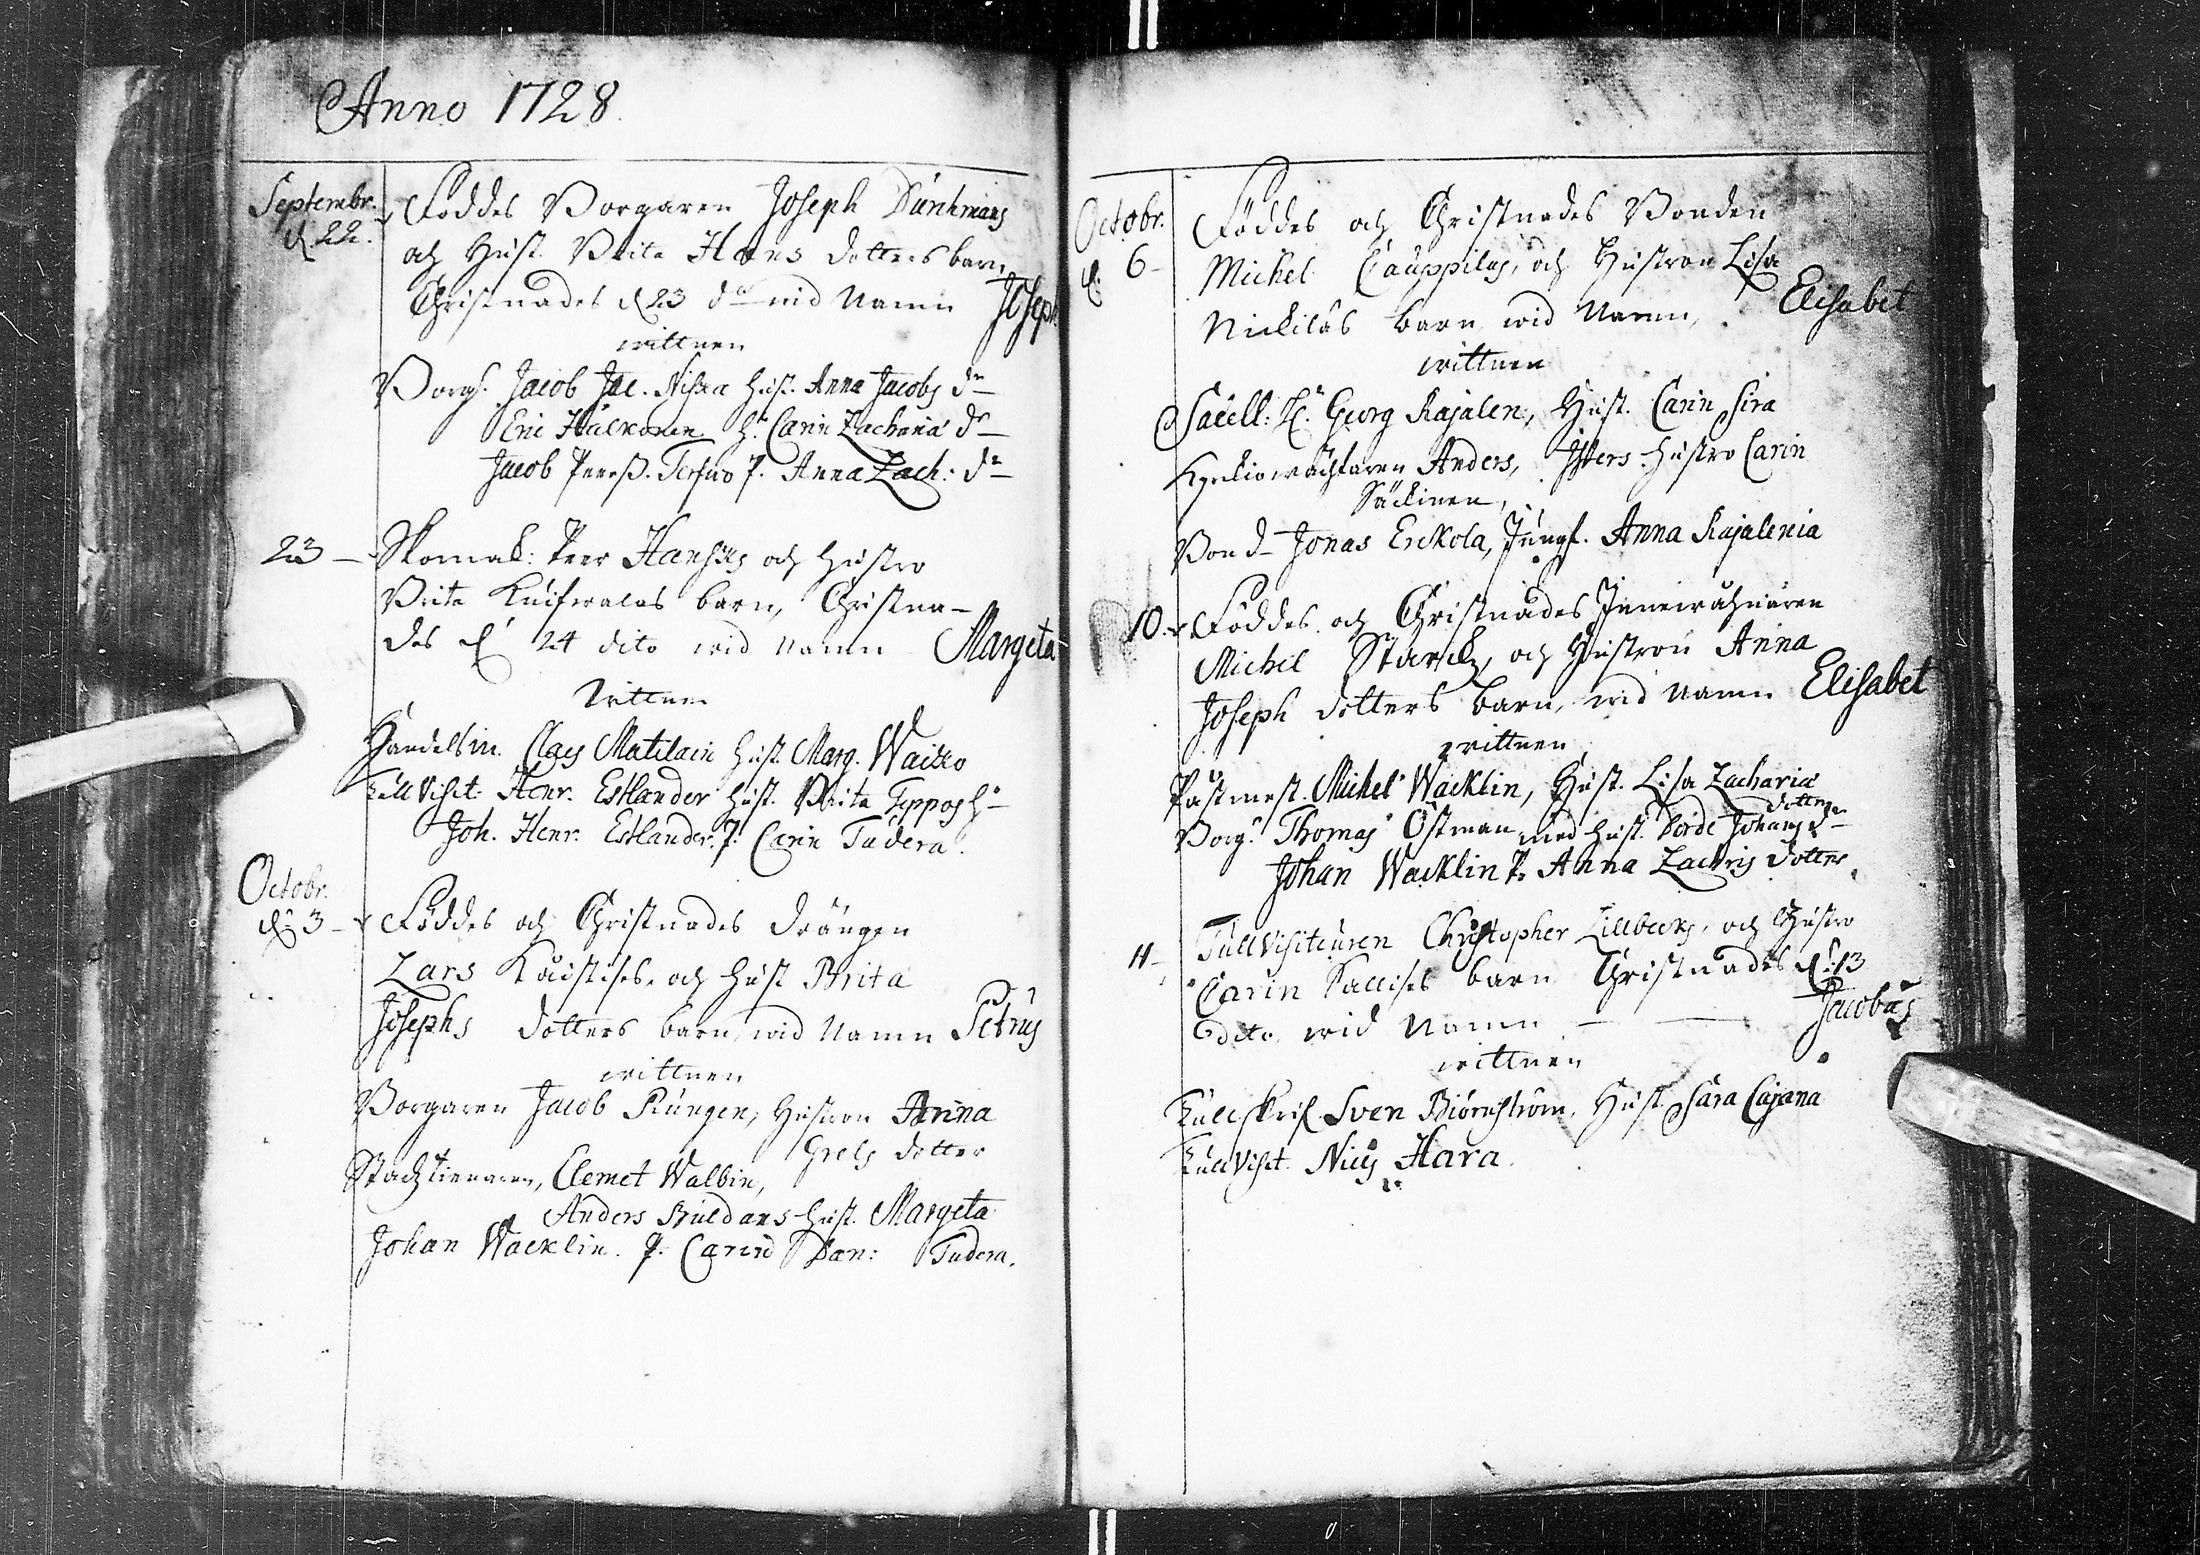 Anno 1728.
Septembr. Föddes Borgaren Joseph Dunkmans
d. 22. och Hust. Brita Hans dotters barn
Christnades d. 23 do wid Namn Joseph
wittnen
Borg. Jacob Jac. Niska Hust. Anna Jacobs dr
Eric Hulkonen H. Carin Zachariæ dr
Jacob Peerss. P. Anna Zach: dr
23 Skomak: Peer Hanssus och Hustro
Brita barn, Christna-
des d. 24 dito wid namn Margeta
Wittnen
Handelsm. Claes Matilain Hust. Marg. Waitko
Tullvisit. Henr. Estlander Hust. Brita
Joh. Henr. Estlander. P. Carin Tudera.
Octobr.
d. 3 Föddes och Christnades drängen
Lars och Hust Brita
Josephs dotters barn, wid Namn Petrus
wittnen
Borgaren Jacob Kungen, Hustron Anna
Grels dotter
Stadztienaren, Clemet Walbin,
Anders Hust. Margeta
Johan Wacklin. P. Carin Dan: Tudera.
Octobr. Föddes och Christnades Bonden
d. 6 Michel Cauppilas, och Hustron Lisa
Nickilas barn wid Namn, Elisabet
wittnen
Sacell: H. Georg Rajalen, Hust. Carin Sira
Kyrkiowächtaren Anders, Hustro Carin
Säckinen,
Bond Jonas Erckola, Jungf. Anna Rajalenia
10. Föddes och Christnades Innewåhnaren
Michel Starck, och Hustron Anna
Joseph dotters barn, wid Namn Elisabet
wittnen
Påstmest. Michel Wacklin, Hust. Lisa Zachariæ
dotter
Borg. Thomas Östman med Hust. Johans dr
Johan Wacklin P. Anna Zachris dotter
11 Tullvisiteuren Christopher Lillbeck, och Hustro
Carin barn Christnades d. 13
dito, wid Namn Jacobus
wittnen
Tullskrif. Sven Biörnström, Hust. Sara Cajana
Tullvisit. Nils Hara.